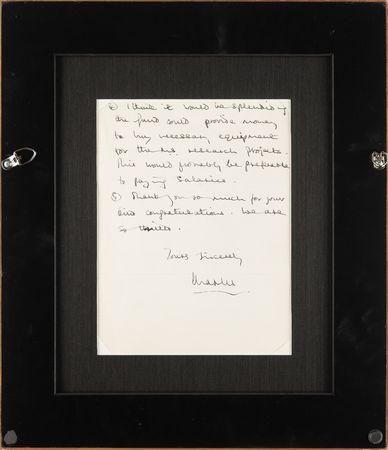 ② I think it would be splendid if
the fund could provide money
to buy necessary equipment
for the research projects.
This would probably be preferable
to paying salaries.
③ Thank you so much for your
kind congratulations. We are
so thrilled.
Yours sincerely
Charles